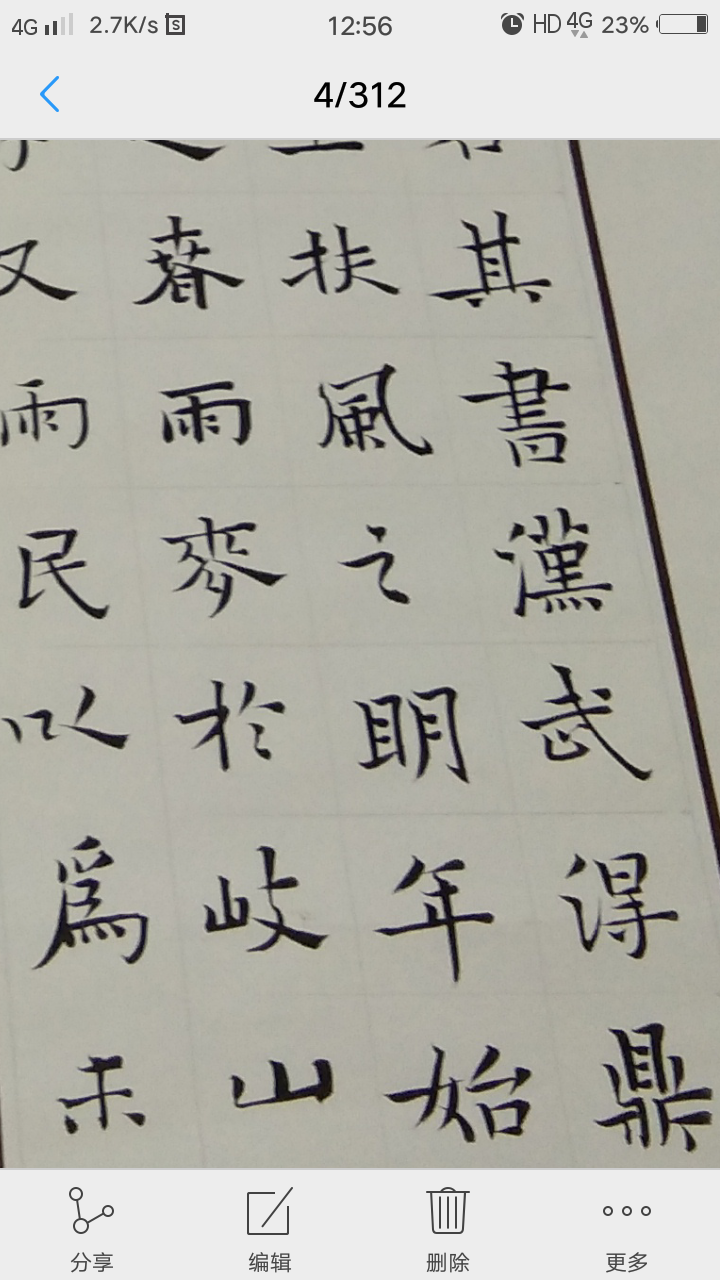 4G 2.7K/s 12:56 HD 4G 23%
4/312
其書漢武得鼎
扶風之明年始
春雨麥於岐山
又雨民以爲未
分享 编辑 删除 更多